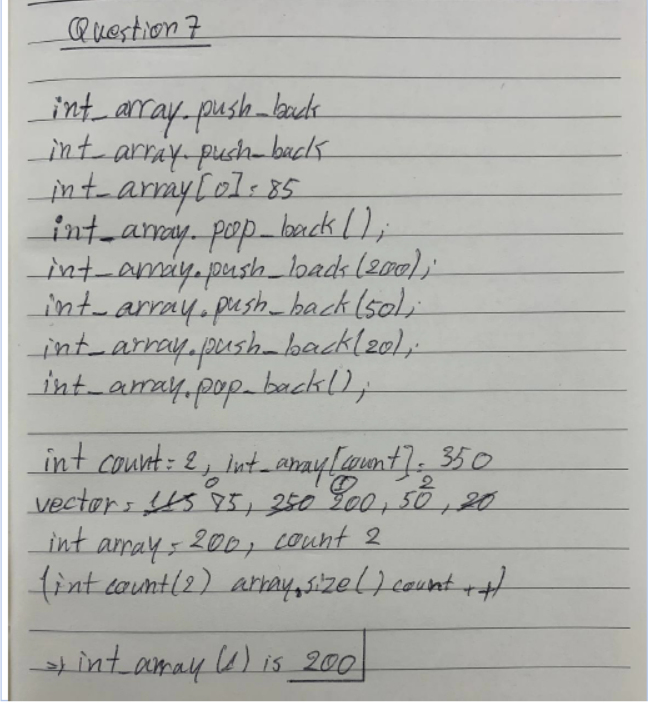 Question 7
int_array.push_back
int_array.push_back
int_array[0]=85
int_array.pop_back();
int_array.push_back(200);
int_array.push_back(50);
int_array.push_back(20);
int_array.pop_back();
int count=2, int_array[count]=350
vector = 115 85, 250 200, 50, 20
0 1 2
int array=200, count 2
(int count(2) array.size() count ++)
⇒ int_array (1) is 200